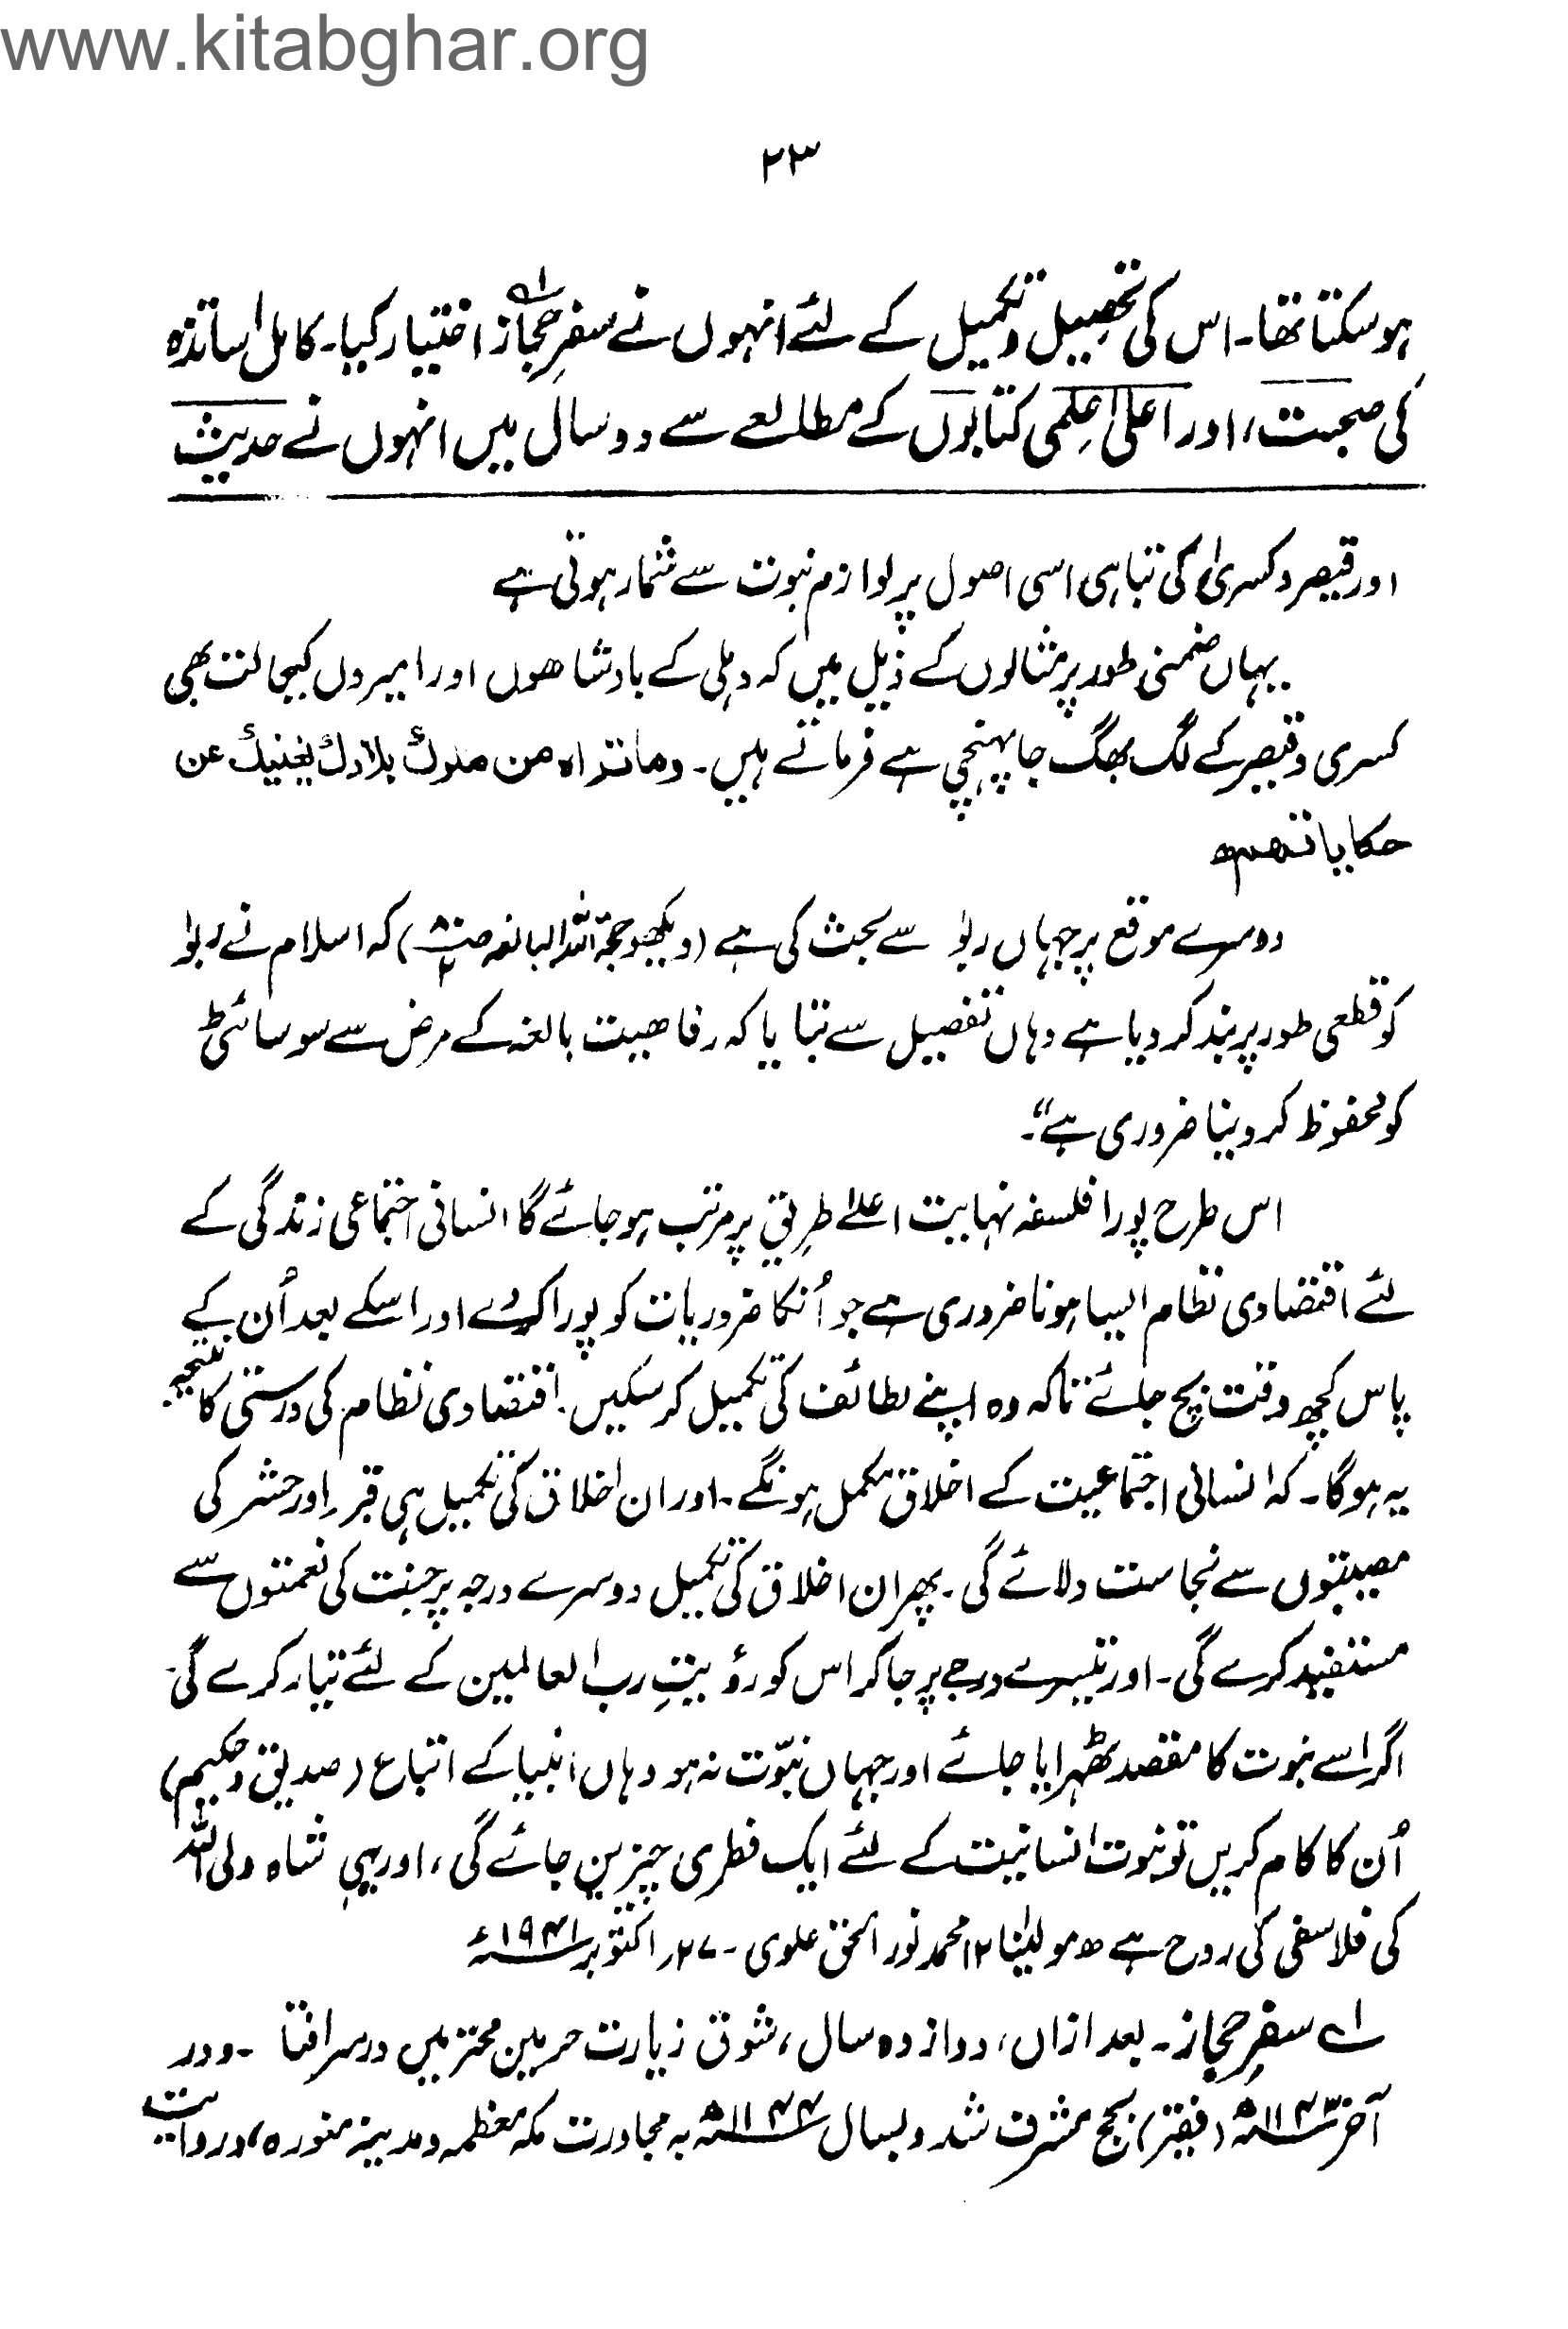 www.kitabghar.org
۲۳
ہوسکتا تھا۔ اس کی تحصیل و تکمیل کے لئے انہوں نے سفرِ حجاز۱ اختیار کیا۔ کامل اساتذہ
کی صحبت، اور اعلیٰ علمی کتابوں کے مطالعے سے دو سال میں انہوں نے حدیث
اور قیصر و کسریٰ کی تباہی اسی اصول پر لوازم نبوت سے شمار ہوتی ہے
یہاں ضمنی طور پر مثالوں کے ذیل میں کہ دہلی کے بادشاھوں اور امیروں کیحالت بھی
کسری و قیصر کے لگ بھگ جا پہنچی ہے فرماتے ہیں۔ وما تراہ من ملوک بلادك یغنیك عن
حکایاتھم
دوسرے موقع پر جہاں ربٰوا سے بحث کی ہے (دیکھو حجۃ اللہ البالغہ) کہ اسلام نے ربٰوا
کو قطعی طور پر بند کر دیا ہے وہاں تفصیل سے بتایا کہ رفاھیت بالغہ کے مرض سے سوسائٹی
کو محفوظ کر دینا ضروری ہے“۔
اس طرح پورا فلسفہ نہایت اعلےٰ طریق پر مرتب ہو جائے گا انسانی اجتماعی زندگی کے
لئے اقتصادی نظام ایسا ہونا ضروری ہے جو اُنکا ضروریات کو پورا کرے اور اسکے بعد اُن کے
پاس کچھ وقت بچ جائے تاکہ وہ اپنے لطائف کی تکمیل کر سکیں۔ اقتصادی نظام کی درستی کا نتیجہ
یہ ہوگا۔ کہ انسانی اجتماعیت کے اخلاق مکمل ہونگے۔ اور ان اخلاق کی تکمیل ہی قبر اور حشر کی
مصیبتوں سے نجاست دلائے گی۔ پھر ان اخلاق کی تکمیل دوسرے درجہ پر جنت کی نعمتوں سے
مستفید کرے گی۔ اور تیسرے درجے پر جا کر اس کو رؤیتِ رب العالمین کے لئے تیار کرے گی
اگر اسے نبوت کا مقصد ٹھہرایا جائے اور جہاں نبوّت نہ ہو وہاں انبیا کے اتباع (صدیق و حکیم)
اُن کا کام کریں تو نبوت انسانیت کے لئے ایک فطری چیز بن جائے گی، اور یہی شاہ ولی اللہ
کی فلاسفی کی روح ہے ھ مولیٰنا ۱۲ محمد نور الحق علوی ۔ ۲۷؍ اکتوبر ۱۹۴۱ء
۱ے سفرِ حجاز۔ بعد ازاں، دوازدہ سال، شوق زیارت حرمین محترمین در سر افتا ۔ و در
آخر ۱۱۴۳ھ (فقیر) بحج مشرف شد و بسال ۱۱۴۴ھ بہ مجاورت مکہ معظمہ و مدینہ منورہ، و روایت